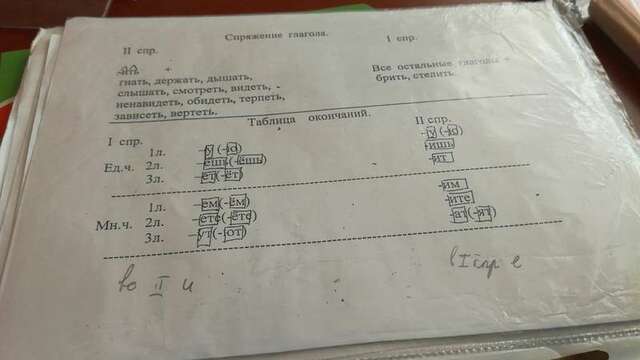 Спряжение глагола.
II спр.
I спр.
-ить +
гнать, держать, дышать,
слышать, смотреть, видеть,
ненавидеть, обидеть, терпеть,
зависеть, вертеть.
Все остальные глаголы +
брить, стелить.
Таблица окончаний.
I спр.
II спр.
Ед.ч.
1л. -у (-ю) -у (-ю)
2л. -ешь (-ёшь) -ишь
3л. -ет (-ёт) -ит
Мн.ч.
1л. -ем (-ём) -им
2л. -ете (-ёте) -ите
3л. -ут (-ют) -ат (-ят)
во II и
в I спр е